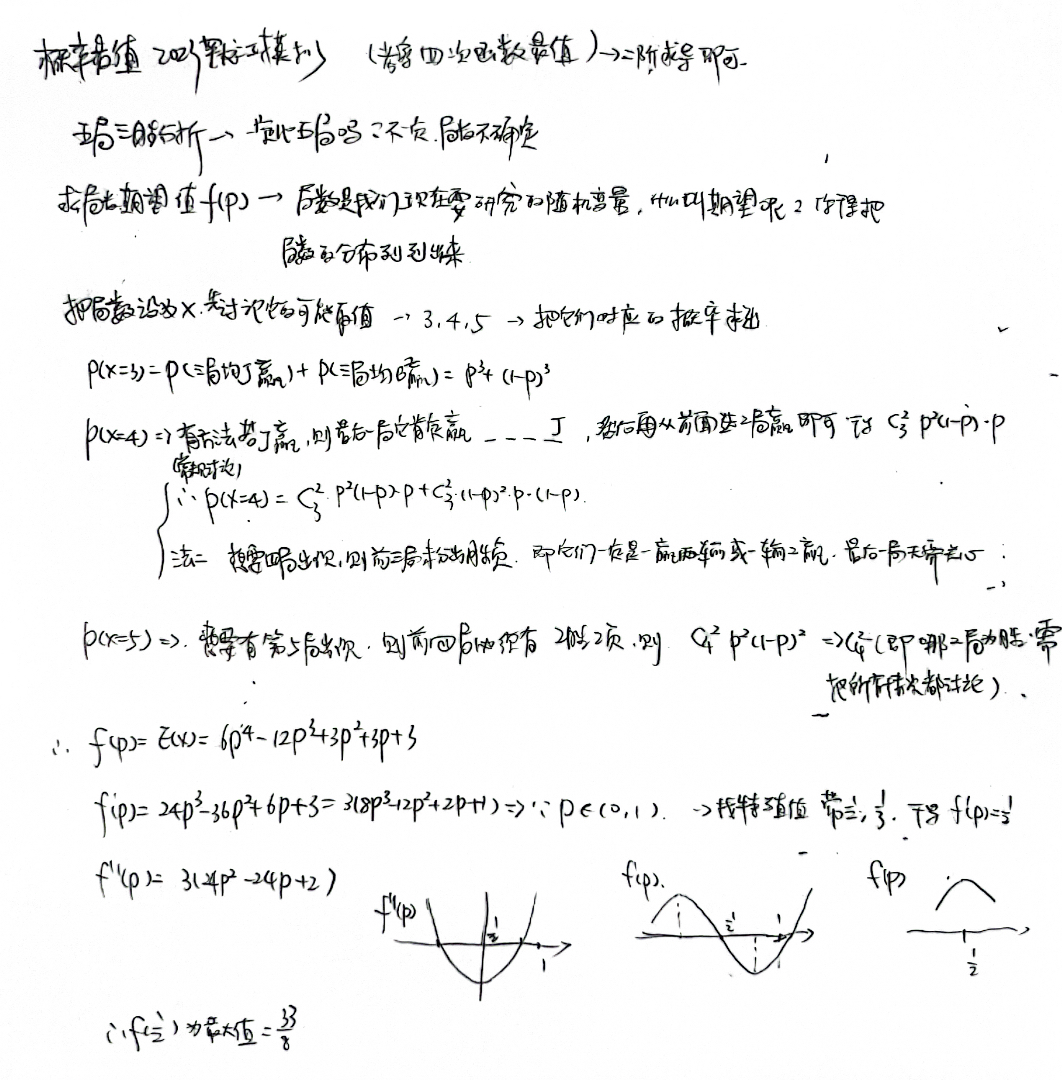 概率最值 202 模拟 (考察四次函数最值)→二阶求导即可
五局三胜分析→ 一定比五局吗?不一定.局数不确定
求局数期望值f(p)→ 局数是我们现在要研究的随机变量,什么叫期望呢?你得把
局数的分布列列出来
把局数设为X.先讨论它的可能取值 → 3,4,5 → 把它们对应的概率求出
P(X=3)=P(三局均J赢)+P(三局均 赢)=p³+(1-p)³
P(X=4)⇒有 法若J赢,则最后一局它肯定赢 _ _ _ J ,然后再从前面选2局赢即可 C₃² p²(1-p)·p
(常规讨论)
∴P(X=4)=C₃²·p²(1-p)·p+C₃²·(1-p)²·p·(1-p)
法二 想要四局出现,则前三局未分出胜负.即它们一定是一赢两输或一输2赢.最后一局无需关心
P(X=5)⇒.想要有第5局出现.则前四局必须有2胜2负.则 C₄² p²(1-p)² ⇒C₄²(即哪2局为胜.需
把所有情况都讨论).
∴ f(p)=E(X)=6p⁴-12p³+3p²+3p+3
f'(p)=24p³-36p²+6p+3=3(8p³-12p²+2p+1)⇒∵p∈(0,1). →找特殊值 带½,⅓. 得f'(p)=½
f''(p)=3(24p²-24p+2)
f''(p) ½ 1
f'(p). ½ 1
f(p) ½
∴f(½)为最大值=33/8